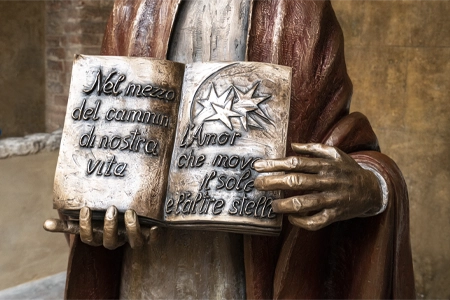 Nel mezzo
del cammin
di nostra
vita
l'Amor
che move
il sole
e l'altre stelle